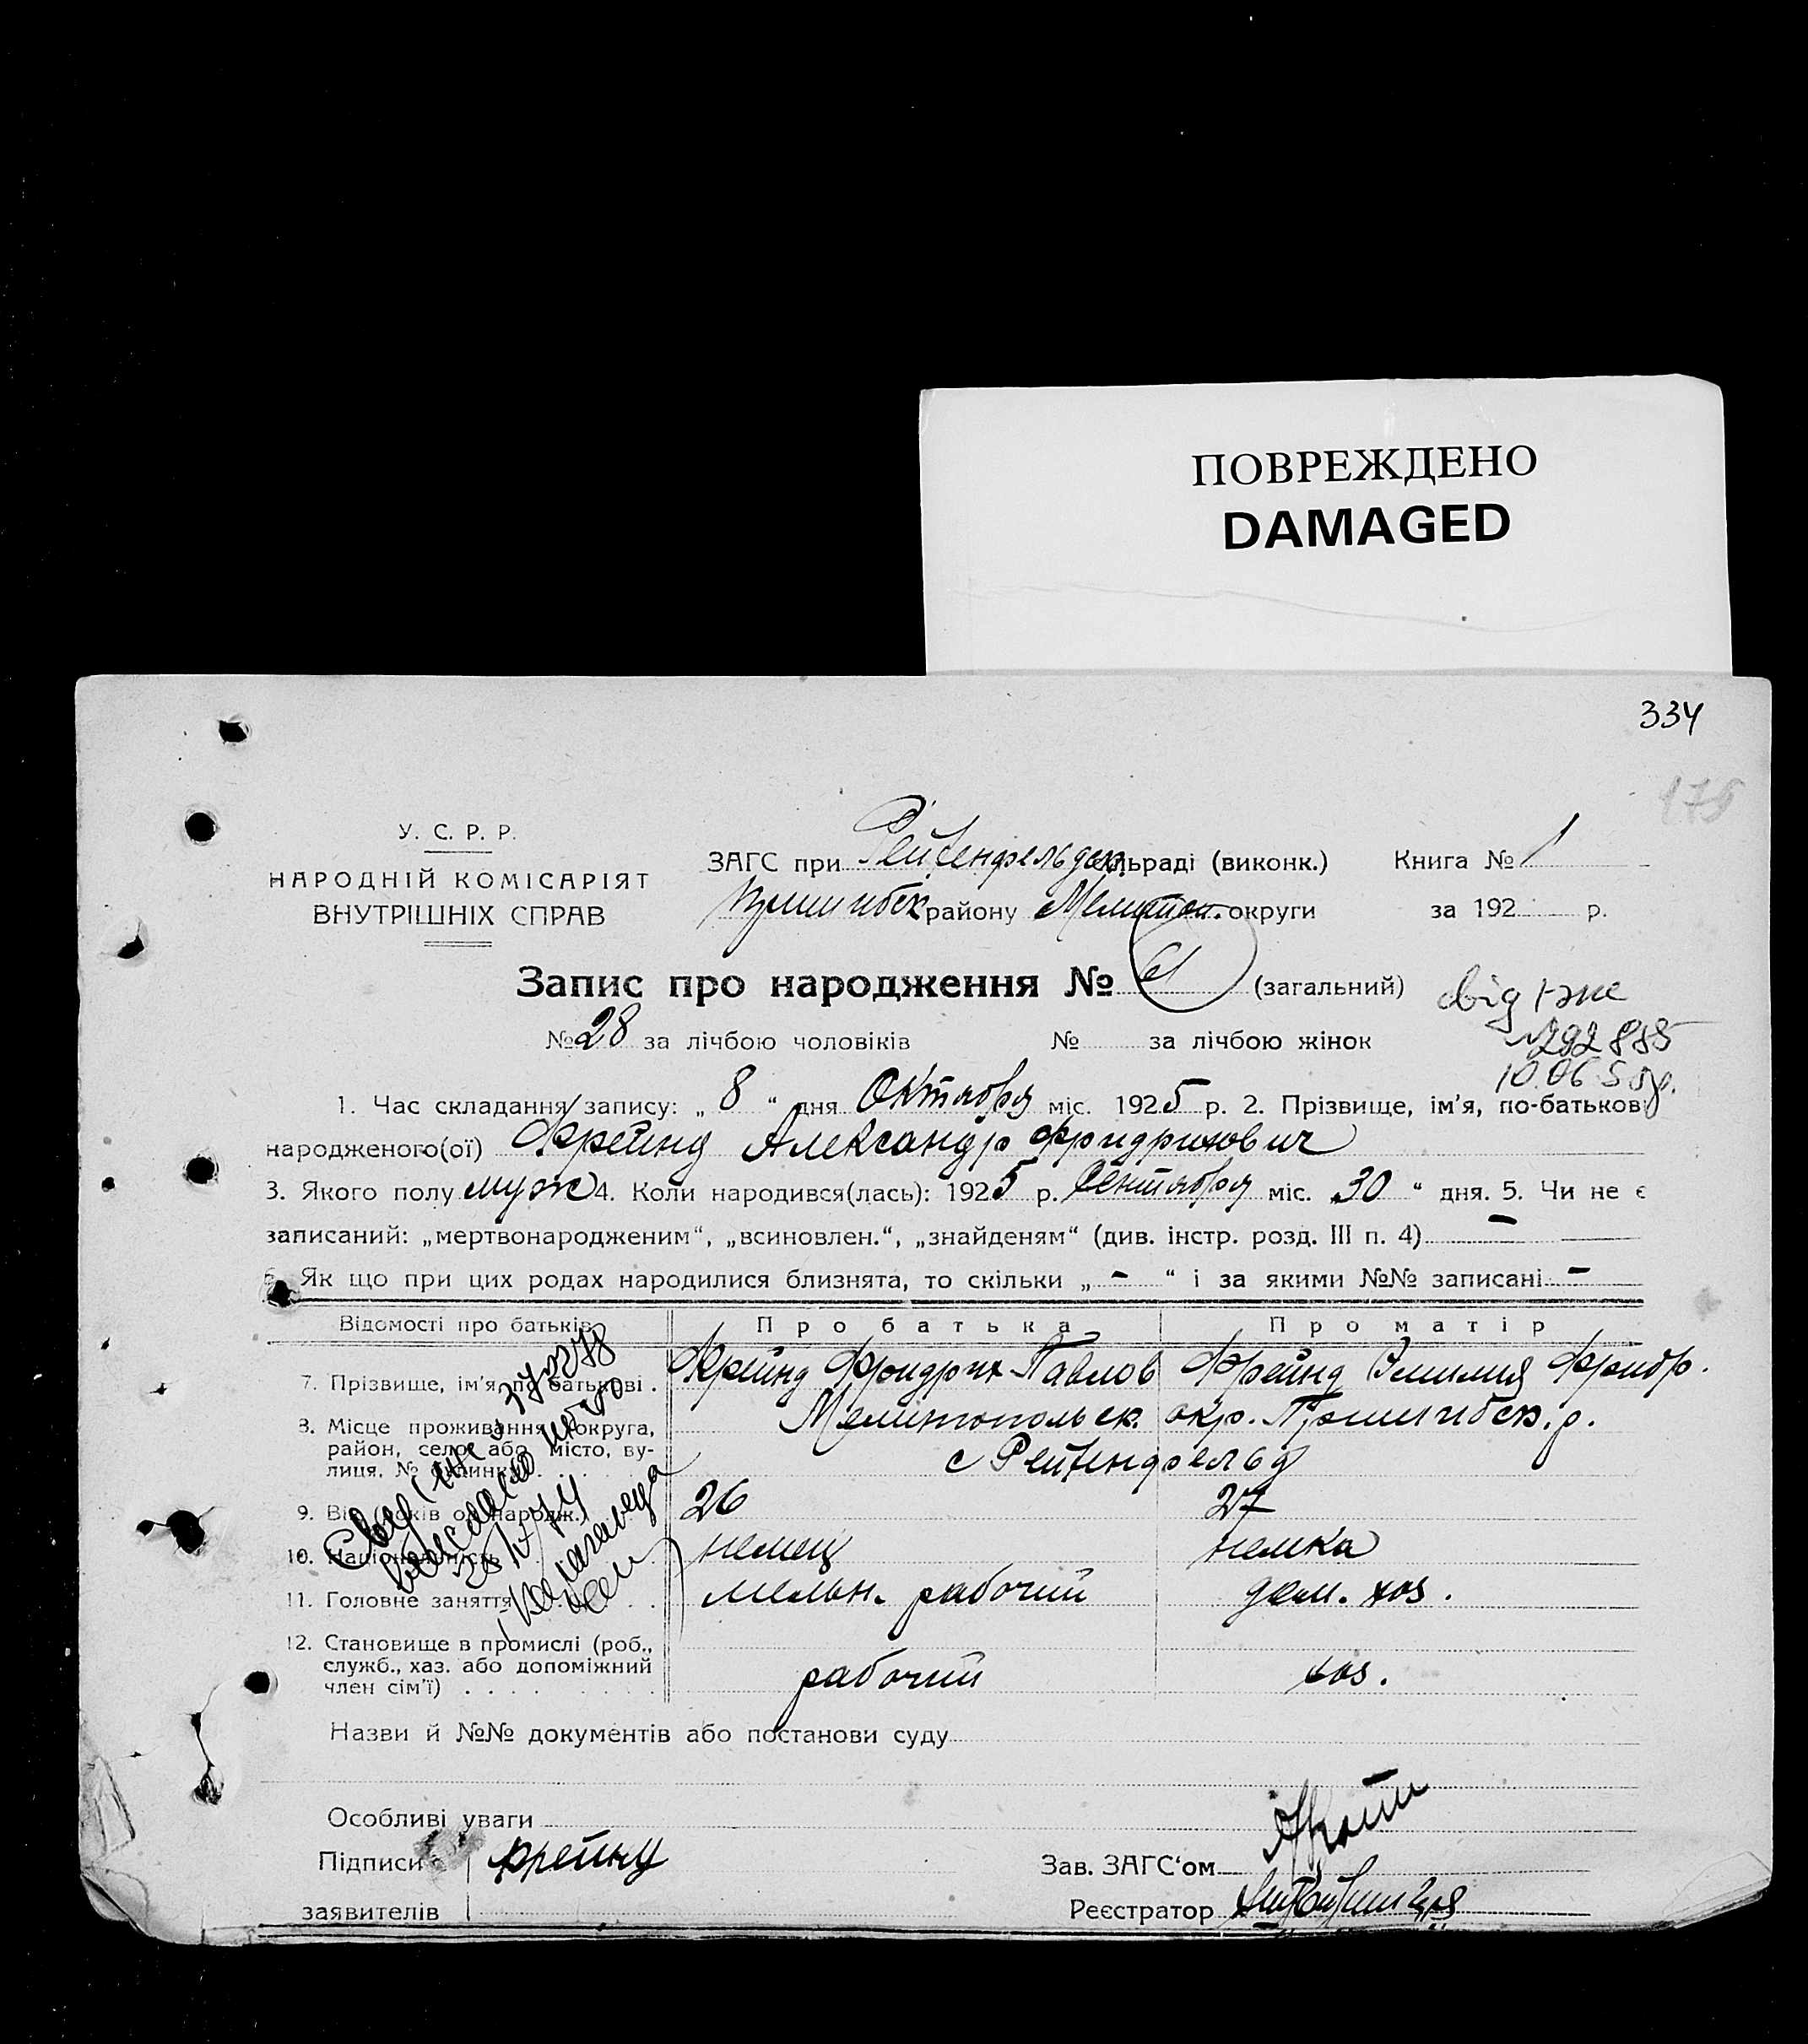 ПОВРЕЖДЕНО
DAMAGED
334
175
У. С. Р. Р.
НАРОДНІЙ КОМІСАРІЯТ
ВНУТРІШНІХ СПРАВ
ЗАГС при Рейхенфельдск. сільраді (виконк.) Книга № 1
Пришибск району Мелитоп. округи за 192 р.
Запис про народження № 61 (загальний)
№ 28 за лічбою чоловіків № за лічбою жінок
1. Час складання запису: „ 8 “ дня Октября міс. 1925 р. 2. Прізвище, ім’я, по-батькові
народженого(ої) Фрейнд Александр Фридрихович
3. Якого полу муж 4. Коли народився(лась): 1925 р. Сентября міс. 30 “ дня. 5. Чи не є
записаний: „мертвонародженим“, „всиновлен.“, „знайденям“ (див. інстр. розд. III п. 4) –
6. Як що при цих родах народилися близнята, то скільки „ – “ і за якими №№ записані –
Відомості про батьків Про батька Про матір
7. Прізвище, ім’я, по батькові . Фрейнд Фридрих Павлов Фрейнд Эмилия Фридр.
8. Місце проживання (округа, район, село або місто, вулиця, № будинку) Мелитопольск. окр. Пришибск. р.
с Рейхенфельд
9. Вік (років од народж.) 26 27
10. Національність немец немка
11. Головне заняття мельн. рабочий дом. хоз.
12. Становище в промислі (роб., служб., хаз. або допоміжний член сім’ї) рабочий хоз.
Назви й №№ документів або постанови суду
Особливі уваги
Підписи Фрейнд Зав. ЗАГС‘ом
заявителів Реєстратор